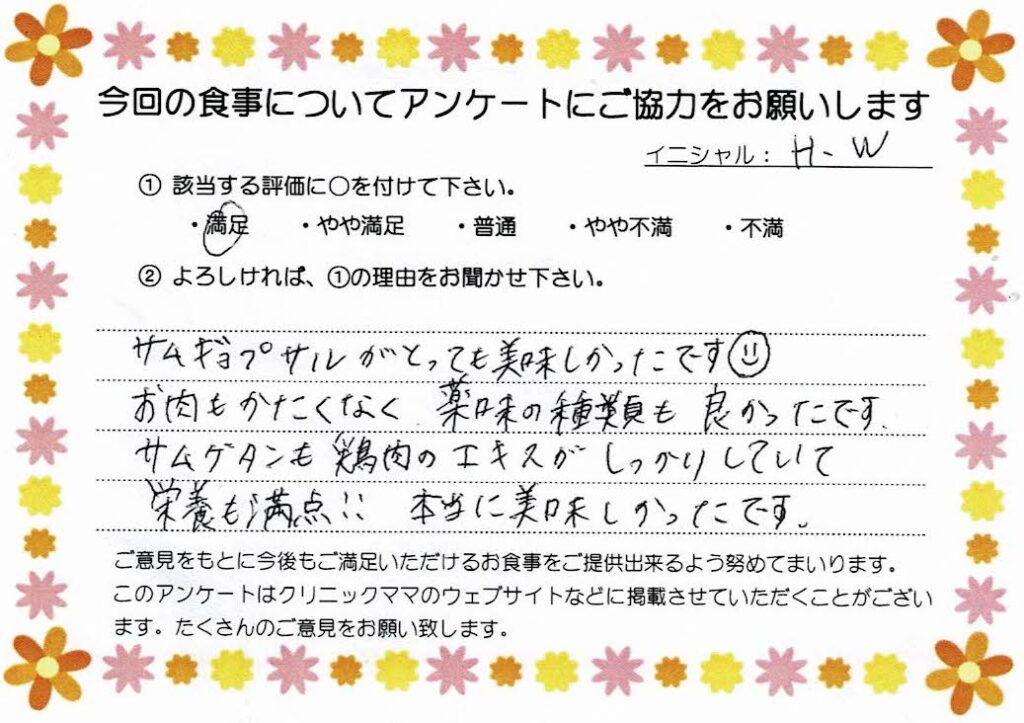 今回の食事についてアンケートにご協力をお願いします
イニシャル： H-W
① 該当する評価に○を付けて下さい。
・満足 ・やや満足 ・普通 ・やや不満 ・不満
② よろしければ、①の理由をお聞かせ下さい。
サムギョプサルがとっても美味しかったです☺
お肉もかたくなく 薬味の種類も 良かったです.
サムゲタンも 鶏肉のエキスが しっかりしていて
栄養も満点!! 本当に美味しかったです。
ご意見をもとに今後もご満足いただけるお食事をご提供出来るよう努めてまいります。
このアンケートはクリニックママのウェブサイトなどに掲載させていただくことがござい
ます。たくさんのご意見をお願い致します。